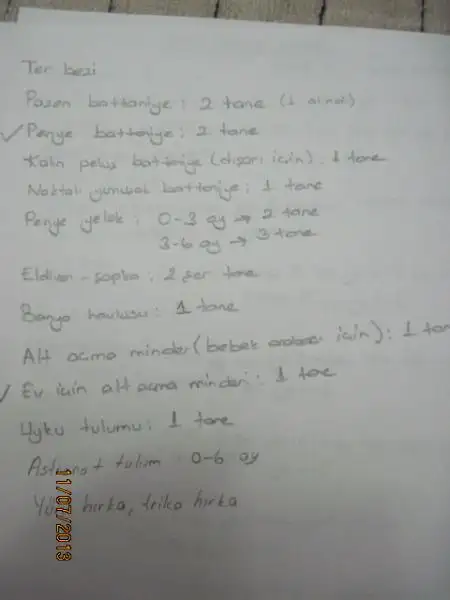 Ter bezi
Pazen battaniye : 2 tane (1 alındı)
✓ Penye battaniye : 2 tane
Kalın peluş battaniye (dışarı için) : 1 tane
Noktalı yumuşak battaniye : 1 tane
Penye yelek : 0-3 ay → 2 tane
3-6 ay → 3 tane
Eldiven - şapka : 2 şer tane
Banyo havlusu : 1 tane
Alt açma minderi (bebek arabası için) : 1 tan
✓ Ev için alt açma minderi : 1 tane
Uyku tulumu : 1 tane
Astronot tulum 0-6 ay
hırka, triko hırka
11/07/2013